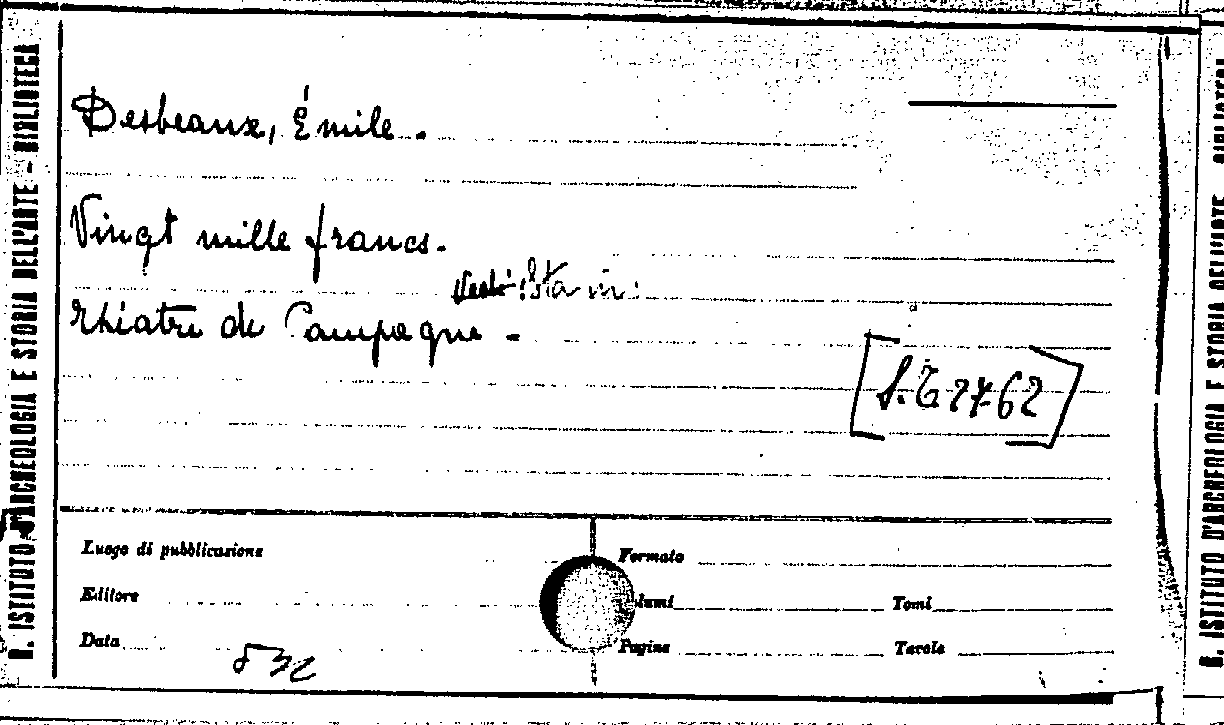 R. ISTITUTO D'ARCHEOLOGIA E STORIA DELL'ARTE - BIBLIOTECA
Desbeaux, Émile.
Vingt mille francs.
Sta in:
Théâtre de Campagne -
Luogo di pubblicazione
Formato
Editore
lumi
Tomi
Data
Pagine
Tavole
R. ISTITUTO D'ARCHEOLOGIA E STORIA DELL'ARTE BIBLIOTECA